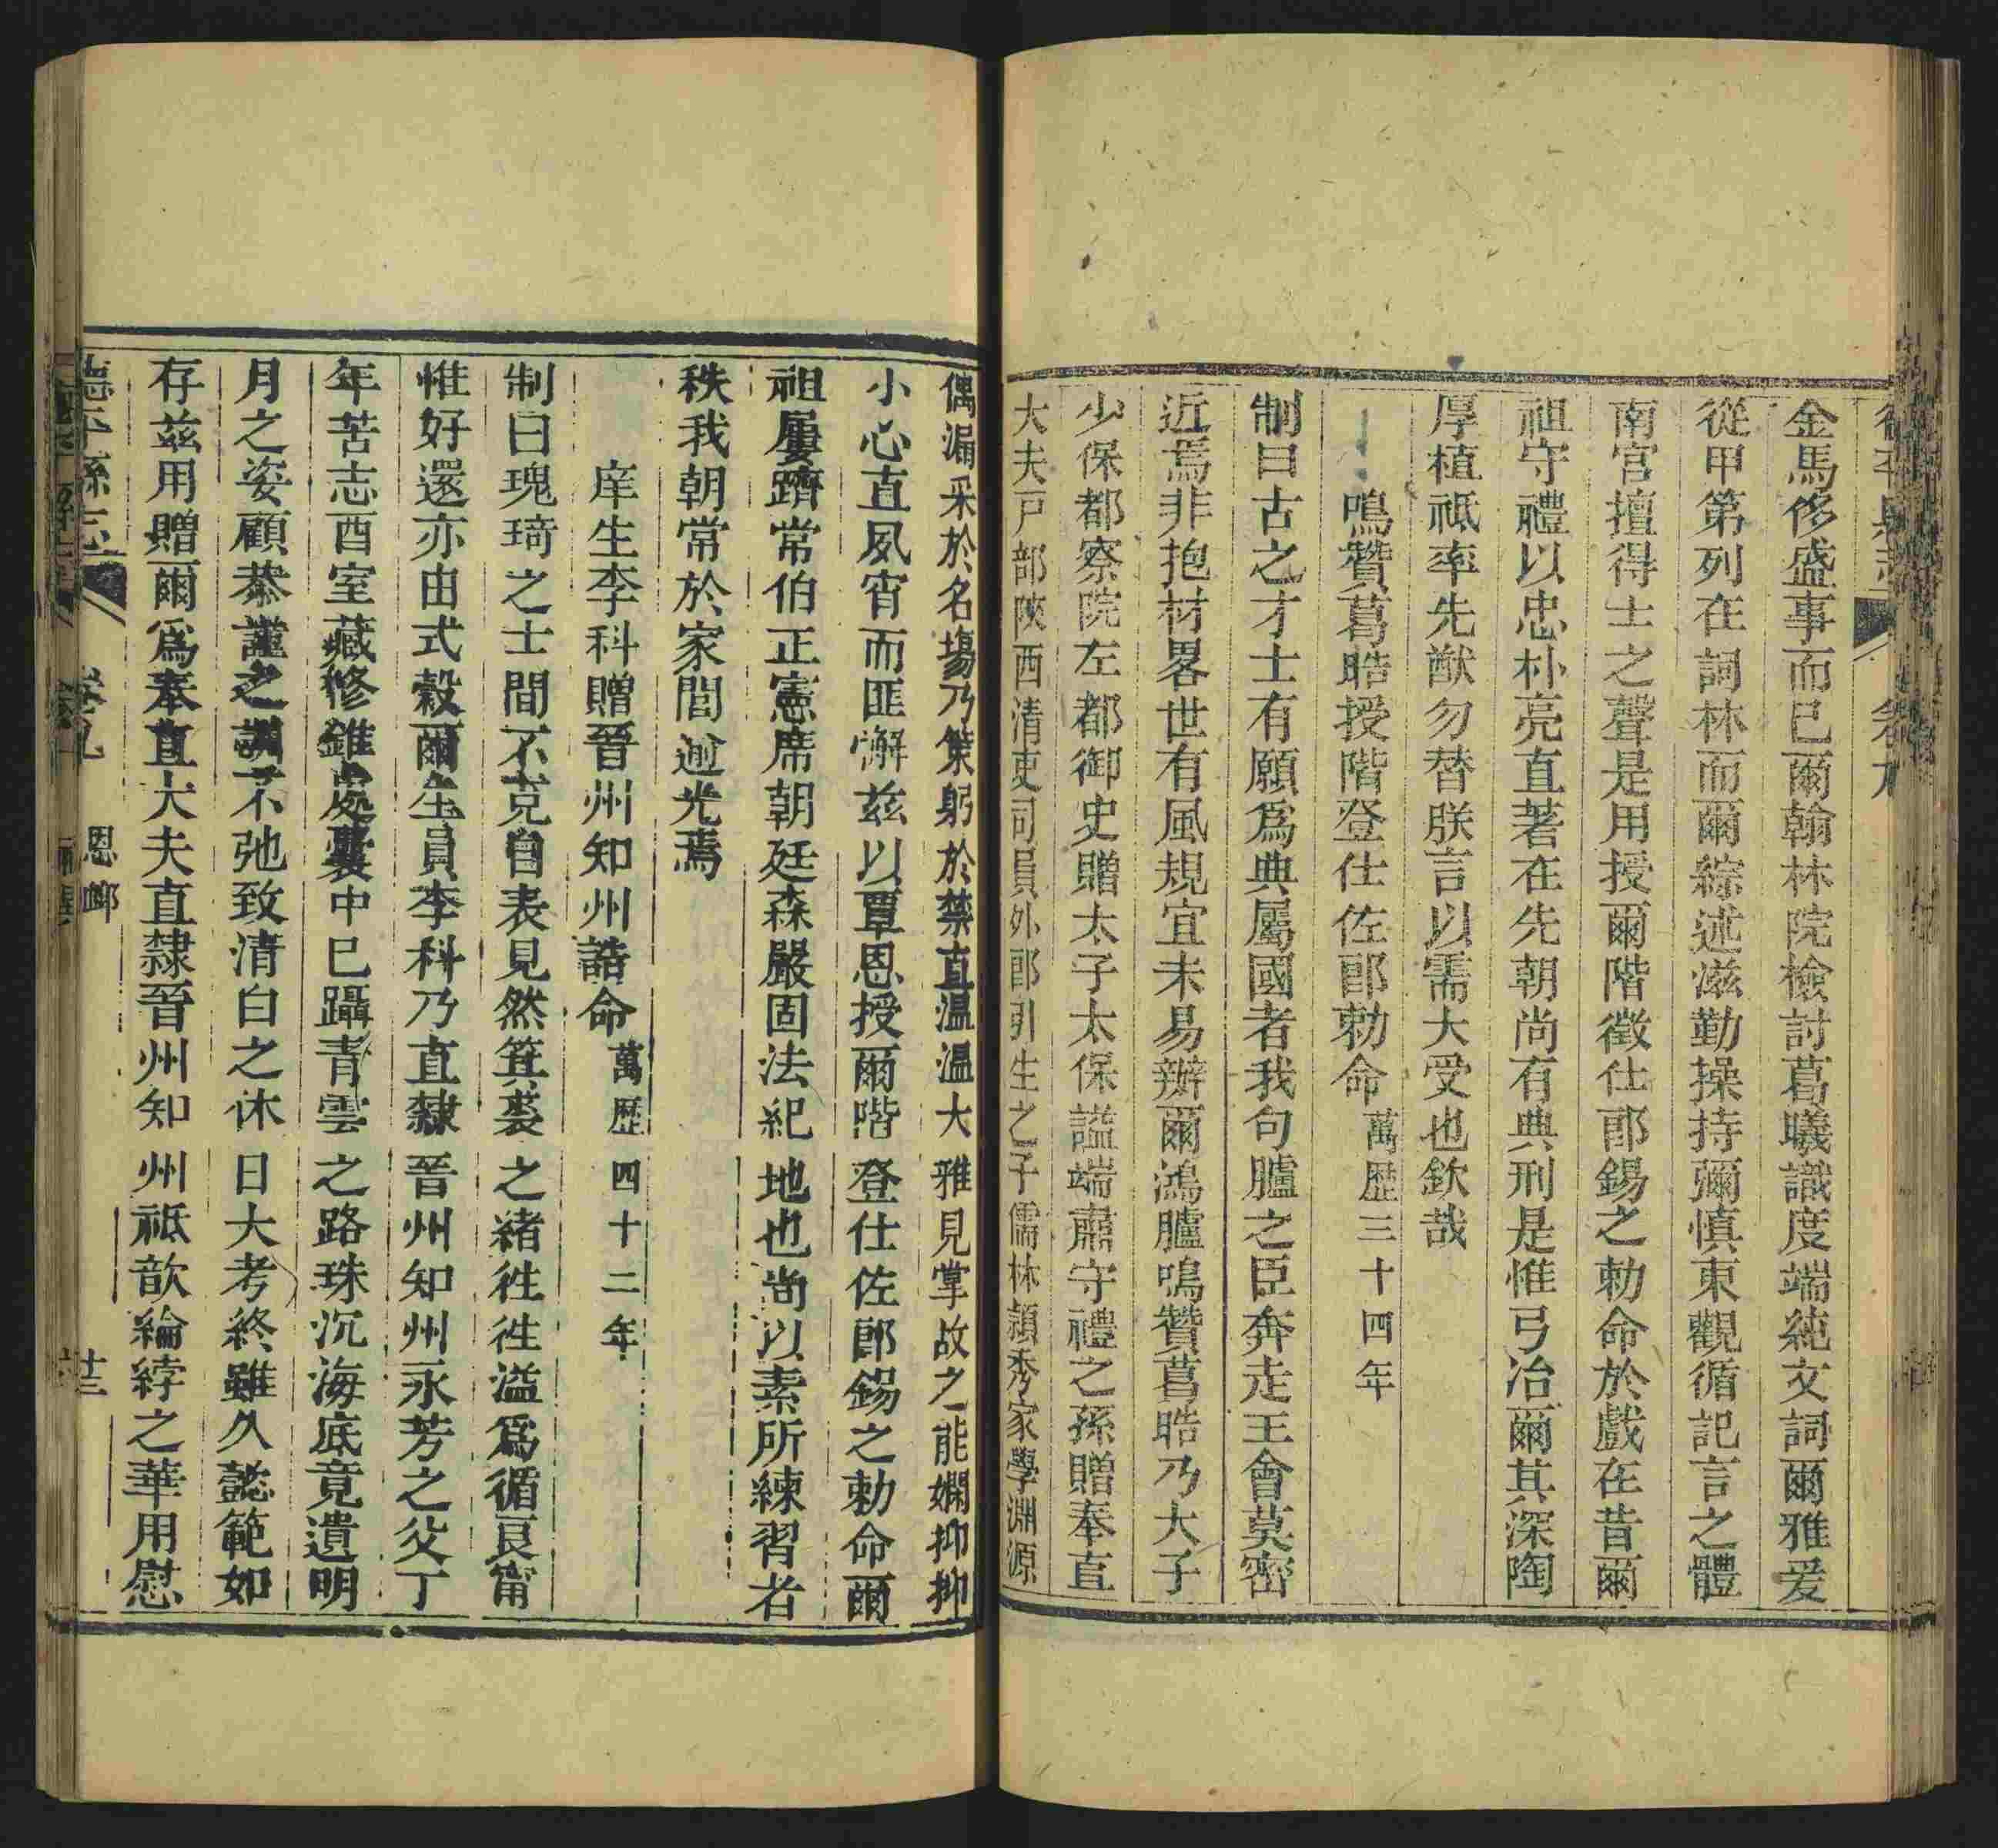 金馬侈盛事而已爾翰林院檢討葛曦識度端純文詞爾雅爰
從甲第列在詞林而爾綜述滋勤操持彌慎東觀循記言之體
南宮擅得士之聲是用授爾階徵仕郎錫之勅命於戲在昔爾
祖守禮以忠朴亮直著在先朝尚有典刑是惟弓冶爾其深陶
厚植祗率先猷勿替朕言以需大受也欽哉
鳴贊葛晧授階登仕佐郎勅命萬歷三十四年
制曰古之才士有願爲典屬國者我句臚之臣奔走王會莫密
近焉非抱材畧世有風規宜未易辦爾鴻臚鳴贊葛晧乃大子
少保都察院左都御史贈太子太保謚端肅守禮之孫贈奉直
大夫戸部陝西清吏司員外郎引生之子儒林穎秀家學淵源
偶漏采於名塲乃策躬於禁直温温大雅見掌故之能嫻抑抑
小心直夙宵而匪懈茲以覃恩授爾階登仕佐郎錫之勅命爾
祖屢躋常伯正憲席朝廷森嚴固法紀地也尚以素所練習者
秩我朝常於家閭逾光焉
庠生李科贈晉州知州誥命萬歷四十二年
制曰瑰琦之士間不克自表見然箕裘之緒徃徃溢爲循良甯
惟好還亦由式穀爾生員李科乃直隸晉州知州永芳之父丁
年苦志酉室藏修錐處囊中巳躡青雲之路珠沉海底竟遺明
月之姿顧恭謹之訓不弛致清白之休日大考終雖久懿範如
存茲用贈爾爲奉直大夫直隸晉州知州祗歆綸綍之華用慰
德平縣志 卷九 恩卹 廿三